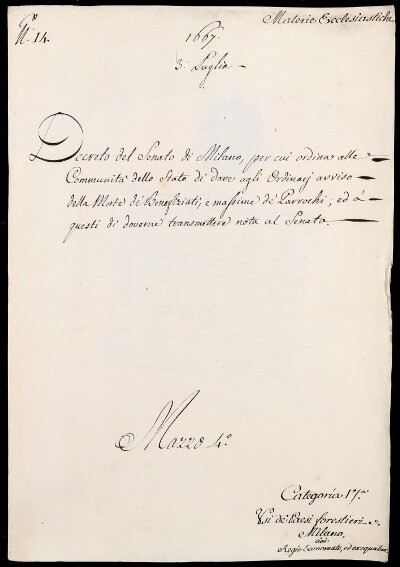 Materie Ecclesiastiche
N.º 14.
1667.
3. Luglio.
Decreto del Senato di Milano, per cui ordina alle
Communità dello Stato di dare agli Ordinarj avviso
della Morte dé Benefiziati; e massime dé Parrochi; ed á
questi di doverne transmettere nota al Senato.
Mazzo 4.º
Categoria 17.ª
Usi dé Paesi forestieri
Milano,
Regio Economato, ed exequatur.